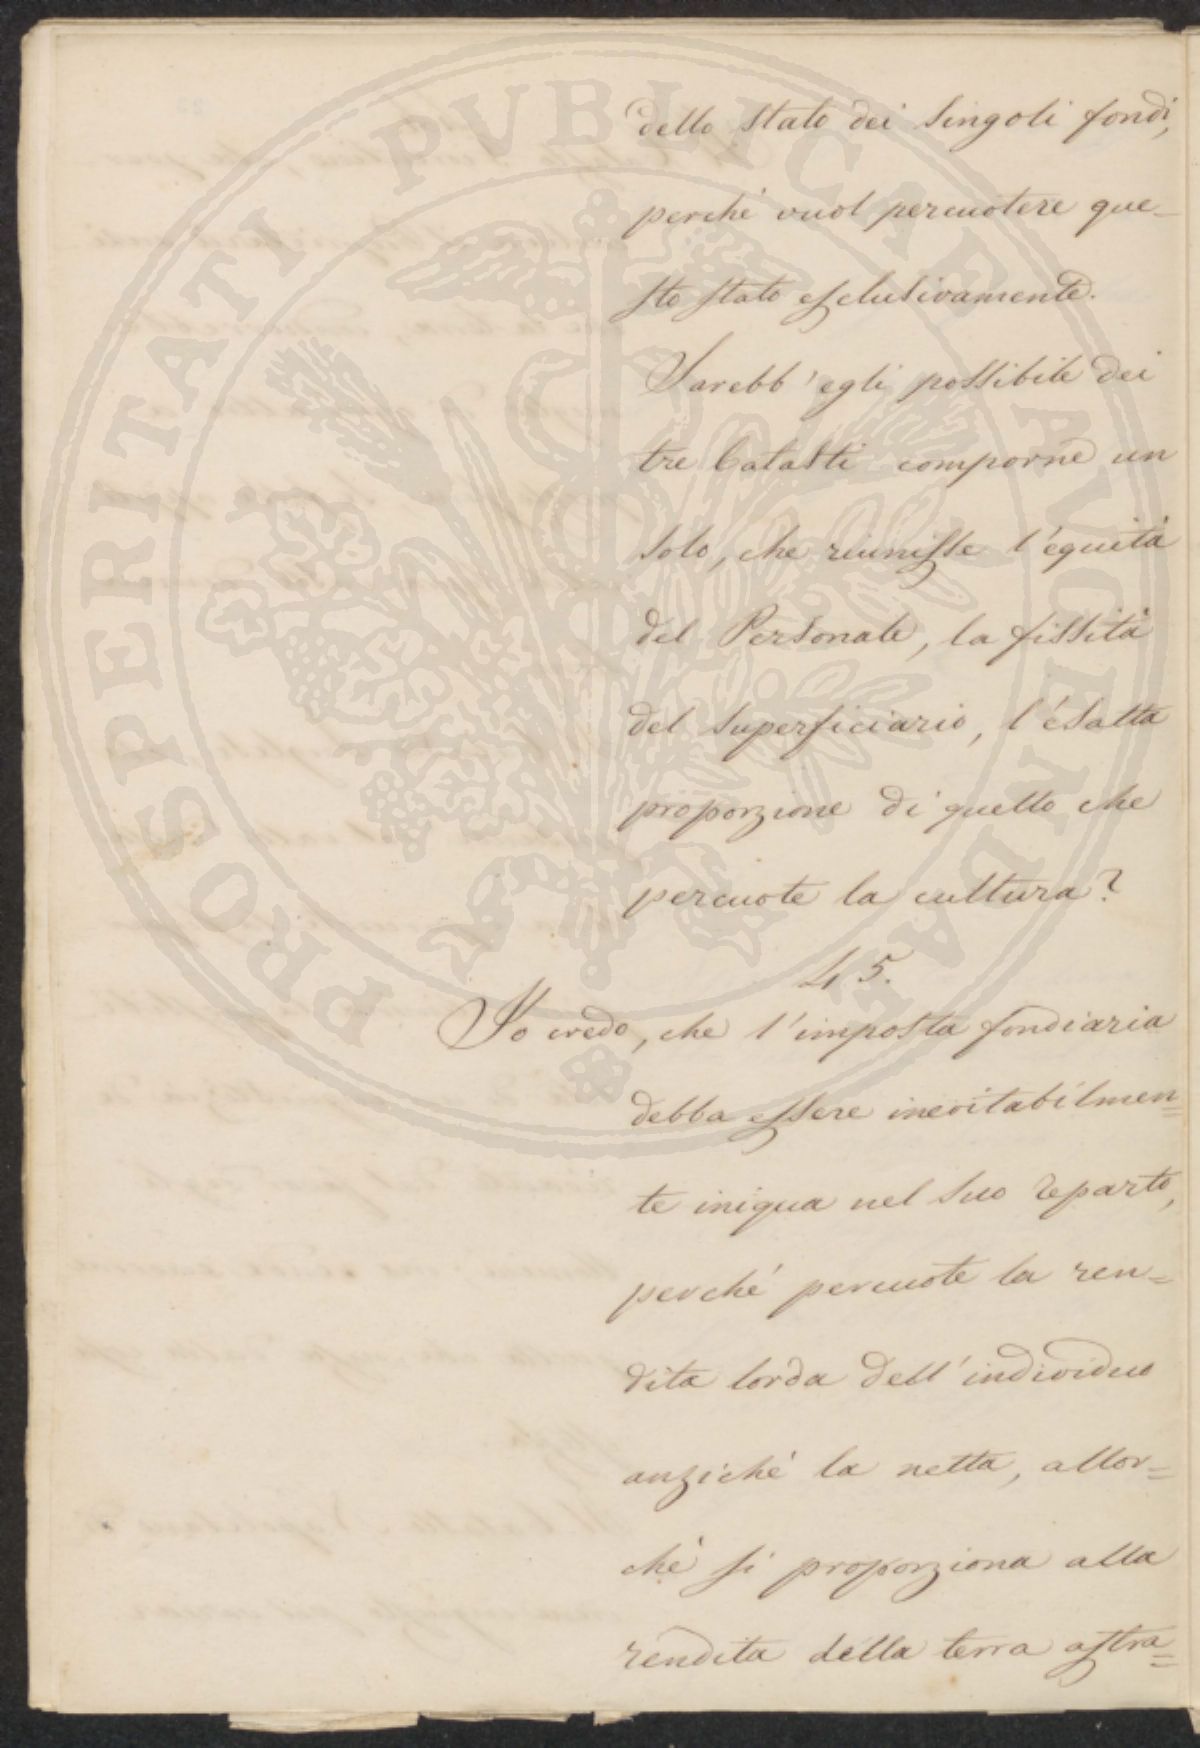 dello stato dei singoli fondi,
perchè vuol percuotere que-
sto stato esclusivamente.
Sarebb'egli possibile dei
tre Catasti comporne un
solo, che riunisse l'equità
del Personale, la fissità
del superficiario, l'esatta
proporzione di quello che
percuote la cultura?
45.
Io credo, che l'imposta fondiaria
debba essere inevitabilmen=
te iniqua nel suo reparto,
perchè percuote la ren=
dita lorda dell'individuo
anzichè la netta, allor=
chè si proporziona alla
rendita della terra astra=
PROSPERITATI PVBLICAE AVGENDAE